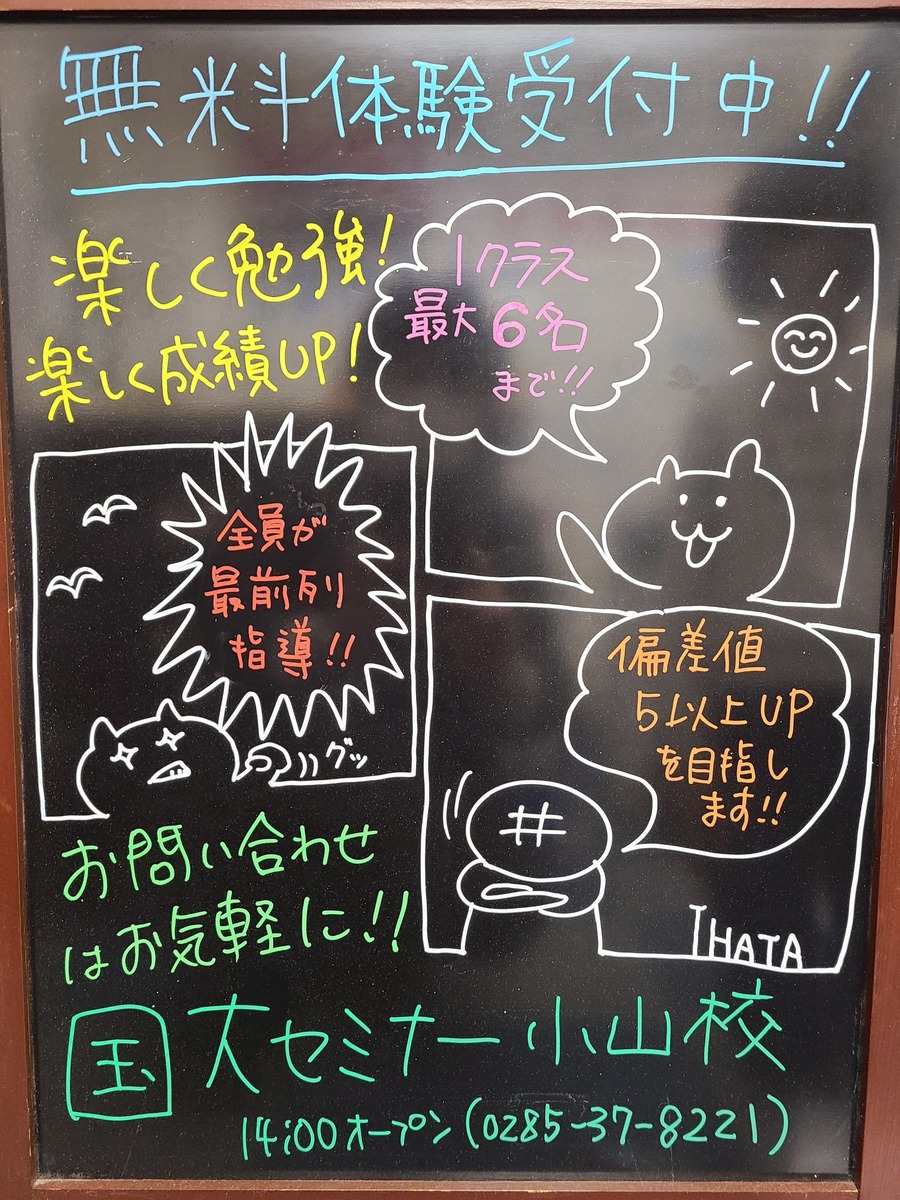 無料体験受付中!!
楽しく勉強!
楽しく成績UP!
1クラス
最大6名
まで!!
全員が
最前列
指導!!
グッ
偏差値
5以上UP
を目指し
ます!!
井
IHATA
お問い合わせ
はお気軽に!!
国大セミナー小山校
14:00オープン(0285-37-8221)